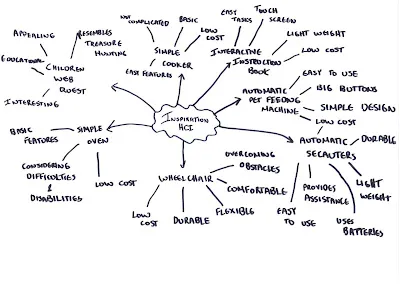 INSPIRATION
HCI
CHILDREN
WEB
QUEST
APPEALING
RESEMBLES
TREASURE
HUNTING
EDUCATIONAL
INTERESTING
SIMPLE
COOKER
NOT
COMPLICATED
BASIC
LOW
COST
EASY FEATURES
INTERACTIVE
INSTRUCTION
BOOK
EASY
TASKS
TOUCH
SCREEN
LIGHT WEIGHT
LOW COST
AUTOMATIC
PET FEEDING
MACHINE
EASY TO USE
BIG BUTTONS
SIMPLE DESIGN
LOW COST
AUTOMATIC
SECAUTERS
DURABLE
LIGHT
WEIGHT
USES
BATTERIES
PROVIDES
ASSISTANCE
EASY
TO USE
WHEELCHAIR
OVERCOMING
OBSTACLES
COMFORTABLE
FLEXIBLE
DURABLE
LOW
COST
SIMPLE
OVEN
BASIC
FEATURES
CONSIDERING
DIFFICULTIES
&
DISABILITIES
LOW COST